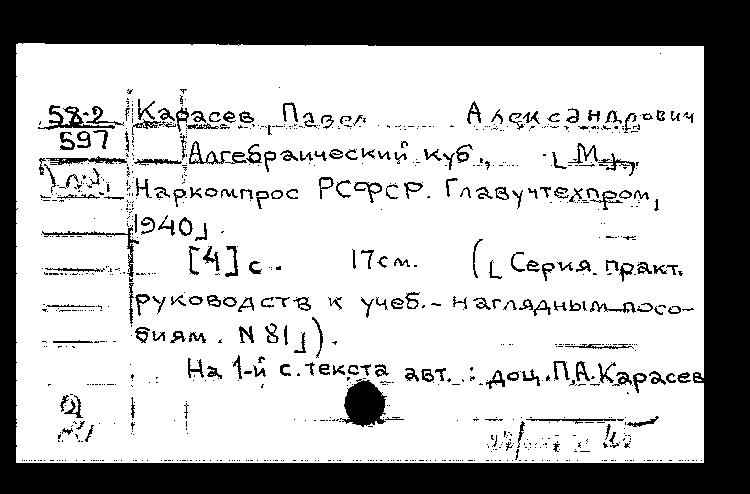 58-2
597
Карасев, Павел Александрович
Алгебраический куб., [М],
Наркомпрос РСФСР. Главучтехпром,
[1940].
[4] с. 17см. ([Серия практ.
руководств к учеб.- наглядным посо-
биям. N 81]).
На 1-й с. текста авт.: доц. П.А. Карасев